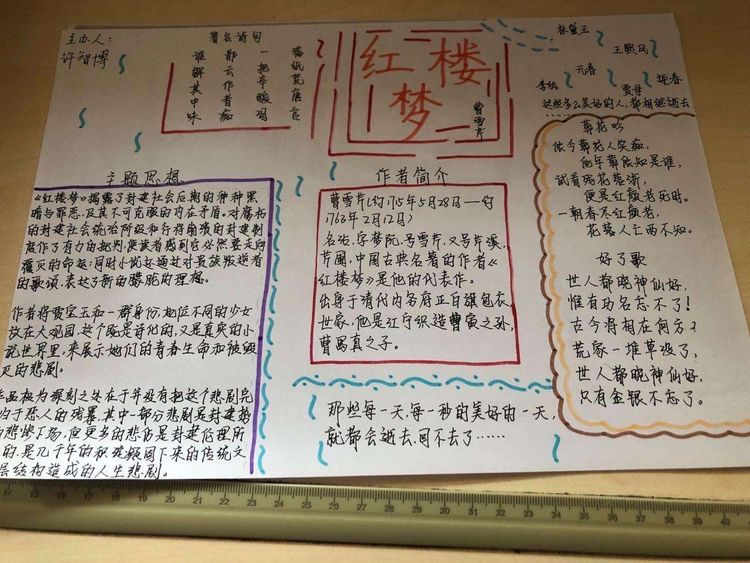 主办人：
许智博
著名诗句
满纸荒唐言
一把辛酸泪
都云作者痴
谁解其中味
红楼
梦
曹雪芹
林黛玉
王熙凤
元春
迎春
李纨
贾母
这些多么美好的人，都相继逝去
葬花吟
侬今葬花人笑痴，
他年葬侬知是谁，
试看春残花落渐，
便是红颜老死时。
一朝春尽红颜老，
花落人亡两不知。
好了歌
世人都晓神仙好，
惟有功名忘不了！
古今将相在何方？
荒冢一堆草没了，
世人都晓神仙好，
只有金银不忘了。
主题思想
《红楼梦》揭露了封建社会后期的种种黑
暗与罪恶，及其不可克服的内在矛盾。对腐朽
的封建社会统治阶级和行将崩溃的封建制
度作了有力的批判，使读者感到它必然要走向
覆灭的命运；同时小说还通过对贵族叛逆者
的歌颂，表达了新的朦胧的理想。
作者将贾宝玉和一群身份、地位不同的少女
放在大观园，这个既是诗化的，又是真实的小
说世界里，来展示她们的青春生命和被毁
灭的悲剧。
作品极为深刻之处在于并没有把这个悲剧完
归于恶人的残暴，其中一部分悲剧是封建势
悲惨下场，但更多的悲伤是封建伦理所
的，是几千年的积淀凝固下来的传统文
层结构造成的人生悲剧。
作者简介
曹雪芹（约1715年5月28日—约
1763年2月12日）
名沾，字梦阮，号雪芹，又号芹溪，
芹圃，中国古典名著的作者《
红楼梦》是他的代表作。
出身于清代内务府正白旗包衣
世家，他是江宁织造曹寅之孙，
曹禺真之子。
那些每一天，每一秒的美好的一天，
就都会逝去，回不去了……
14 15 16 17 18 19 20 21 22 23 24 25 26 27 28 29 30 31 32 33 34 35 36 37 38 39 40